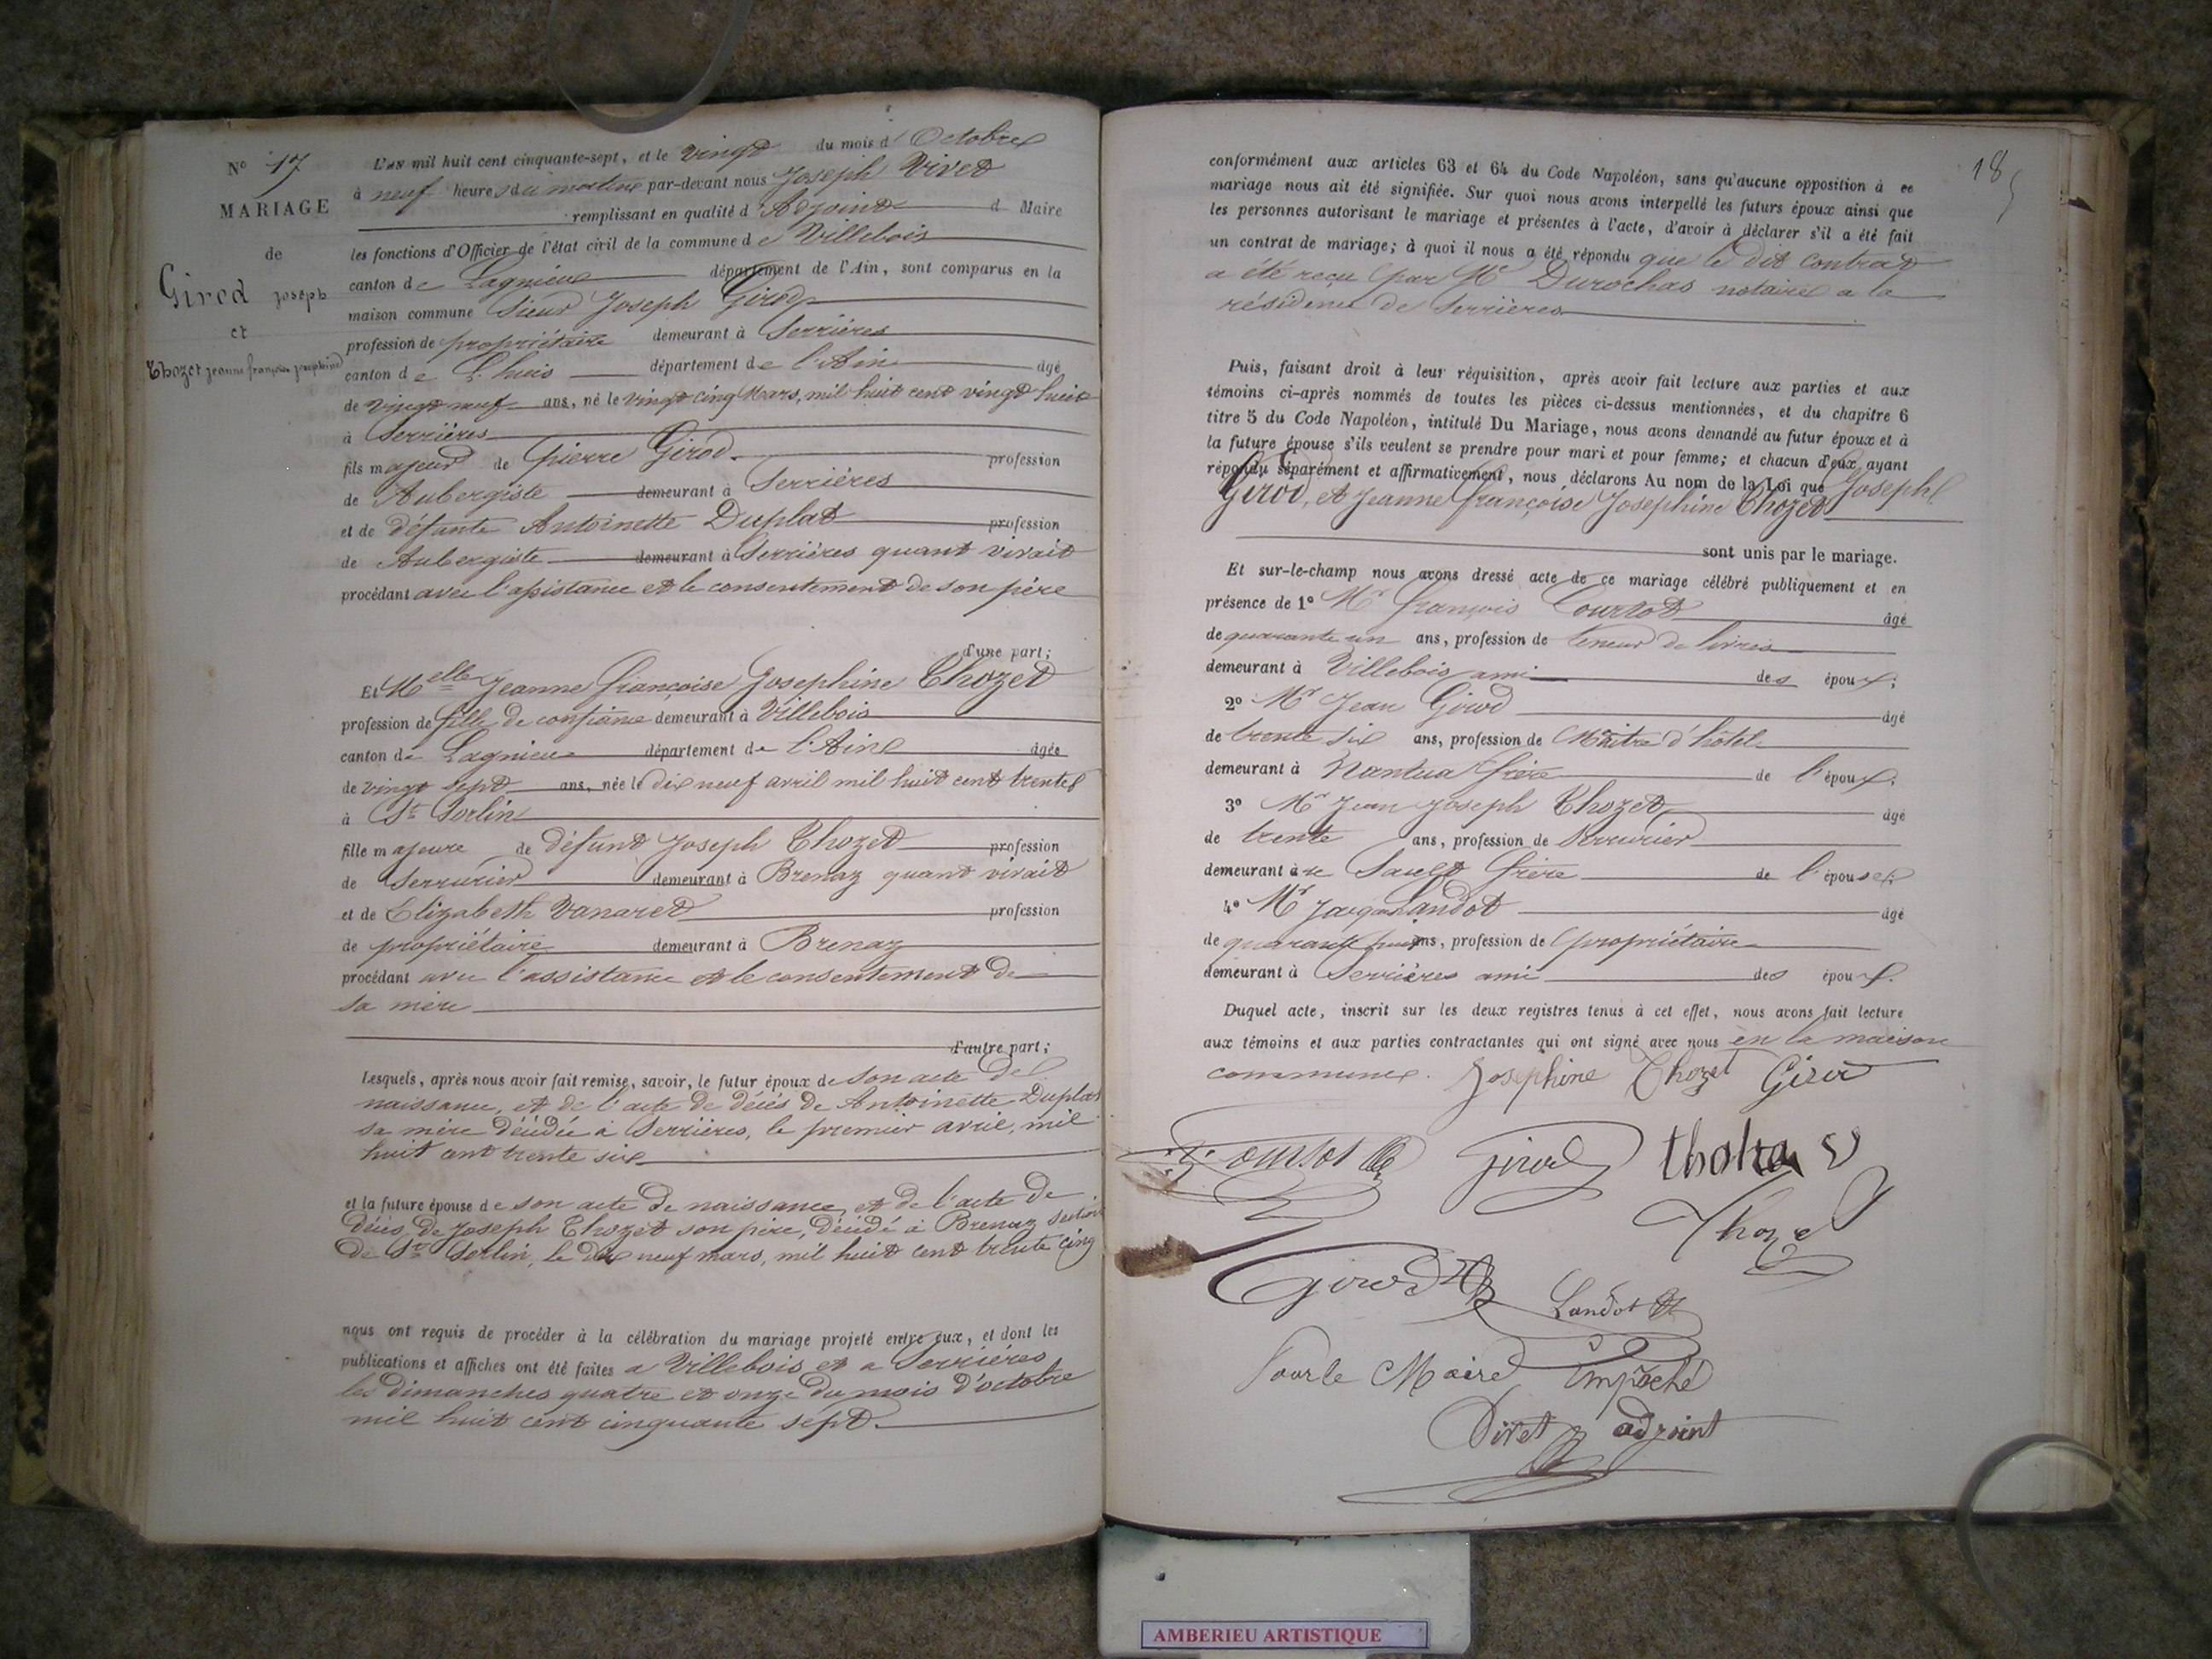 N° 17
MARIAGE
de
Girod Joseph
et
Thozet jeanne françoise joséphine
L'AN mil huit cent cinquante-sept, et le vingt du mois d'Octobre
à neuf heures du matin par-devant nous Joseph Vivet
remplissant en qualité d'Adjoint d Maire
les fonctions d'Officier de l'état civil de la commune de Villebois
canton de Lagnieu département de l'Ain, sont comparus en la
maison commune Sieur Joseph Girod
profession de propriétaire demeurant à Serrières
canton de L'huis département de l'Ain âgé
de vingt neuf ans, né le vingt cinq Mars, mil huit cent vingt huit
à Serrières
fils majeur de Pierre Girod profession
de Aubergiste demeurant à Serrières
et de défunte Antoinette Duplat profession
de Aubergiste demeurant à Serrières quant vivait
procédant avec l'assistance et le consentement de son père
d'une part;
Et Melle Jeanne Françoise Josephine Thozet
profession de fille de confiance demeurant à Villebois
canton de Lagnieu département de l'Ain âgée
de vingt sept ans, née le dix neuf avril mil huit cent trente
à St Sorlin
fille majeure de défunt Joseph Thozet profession
de Serrurier demeurant à Brenaz quant vivait
et de Elizabeth Vanaret profession
de propriétaire demeurant à Brenaz
procédant avec l'assistance et le consentement de
sa mère
d'autre part;
Lesquels, après nous avoir fait remise, savoir, le futur époux de son acte de
naissance, et de l'acte de décès de Antoinette Duplat
sa mère décédée à Serrières, le premier avril, mil
huit cent trente six
et la future épouse de son acte de naissance, et de l'acte de
décès de Joseph Thozet son père, décédé à Brenaz section
de St Sorlin, le dix neuf mars, mil huit cent trente cinq
nous ont requis de procéder à la célébration du mariage projeté entre eux, et dont les
publications et affiches ont été faites a Villebois et a Serrières
les dimanches quatre et onze du mois d'octobre
mil huit cent cinquante sept.
18
conformément aux articles 63 et 64 du Code Napoléon, sans qu'aucune opposition à ce
mariage nous ait été signifiée. Sur quoi nous avons interpellé les futurs époux ainsi que
les personnes autorisant le mariage et présentes à l'acte, d'avoir à déclarer s'il a été fait
un contrat de mariage; à quoi il nous a été répondu que le dit contrat
a été reçu par Me Durochas notaire a la
résidence de Serrières
Puis, faisant droit à leur réquisition, après avoir fait lecture aux parties et aux
témoins ci-après nommés de toutes les pièces ci-dessus mentionnées, et du chapitre 6
titre 5 du Code Napoléon, intitulé Du Mariage, nous avons demandé au futur époux et à
la future épouse s'ils veulent se prendre pour mari et pour femme; et chacun d'eux ayant
répondu séparément et affirmativement, nous déclarons Au nom de la Loi que Joseph
Girod, et Jeanne Françoise Josephine Thozet
sont unis par le mariage.
Et sur-le-champ nous avons dressé acte de ce mariage célébré publiquement et en
présence de 1° Mr François Courtot âgé
de quarante un ans, profession de teneur de livres
demeurant à Villebois ami des époux;
2° Mr Jean Girod âgé
de trente six ans, profession de Maitre d'hôtel
demeurant à Nantua frère de l'époux;
3° Mr Jean Joseph Thozet âgé
de trente ans, profession de Serrurier
demeurant à Sault frère de l'épouse;
4° Mr Landot âgé
de quarante ans, profession de propriétaire
demeurant à Serrières ami des époux.
Duquel acte, inscrit sur les deux registres tenus à cet effet, nous avons fait lecture
aux témoins et aux parties contractantes qui ont signé avec nous en la maison
commune. Josephine Thozet Girod
Girod
Thozet
Girod
Landot
Pour le Maire Empeché
Vivet adjoint
AMBERIEU ARTISTIQUE